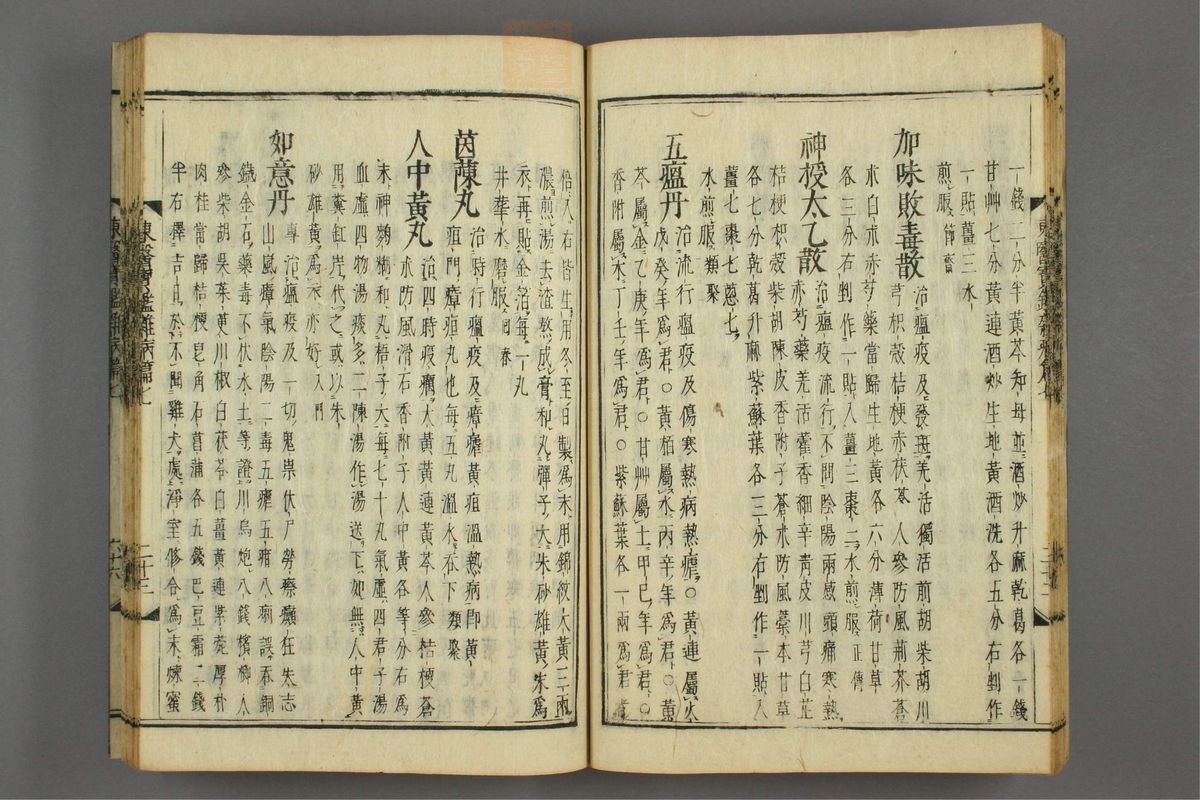 一錢二分半黃芩知母並酒炒升麻乾葛各一錢
甘艸七分黃連酒炒生地黃酒洗各五分右剉作
一貼薑三水
煎服節齋
加味敗毒散治瘟疫及發斑羌活獨活前胡柴胡川
芎枳殼桔梗赤茯苓人參防風荊芥蒼
朮白朮赤芍藥當歸生地黃各六分薄荷甘草
各三分右剉作一貼入薑三棗二水煎服正傳
神授太乙散治瘟疫流行不問陰陽兩感頭痛寒熱
赤芍藥羌活藿香細辛青皮川芎白芷
桔梗枳殼柴胡陳皮香附子蒼朮防風藁本甘草
各七分乾葛升麻紫蘇葉各三分右剉作一貼入
薑七棗七蔥七
水煎服類聚
五瘟丹治流行瘟疫及傷寒熱病熱瘧○黃連屬火
戊癸年爲君○黃柏屬水丙辛年爲君○黃
芩屬金乙庚年爲君○甘艸屬土甲己年爲君○
香附屬木丁壬年爲君○紫蘇葉各一兩爲君者
倍入右皆生用冬至日製爲末用錦紋大黃三兩
濃煎湯去渣熬成膏和丸彈子大朱砂雄黃末爲
衣再貼金箔每一丸
井華水磨服回春
茵蔯丸治時行瘟疫及瘴瘧黃疸溫熱病即黃
疸門瘴疸丸也每五丸溫水吞下類聚
人中黃丸治四時疫癘大黃黃連黃芩人參桔梗蒼
朮防風滑石香附子人中黃各等分右爲
末神麴糊和丸梧子大每七十丸氣虛四君子湯
血虛四物湯痰多二陳湯作湯送下如無人中黃
用糞缸岸代之或以朱
砂雄黃爲衣亦好入門
如意丹專治瘟疫及一切鬼祟伏尸勞瘵癲狂失志
山嵐瘴氣陰陽二毒五瘧五疳八痢誤吞銅
鐵金石藥毒不伏水土等證川烏炮八錢檳榔人
參柴胡吳茱萸川椒白茯苓白薑黃連紫菀厚朴
肉桂當歸桔梗皂角石菖蒲各五錢巴豆霜二錢
半右擇吉日於不聞雞犬處淨室修合爲末煉蜜
東醫寶鑑雜病篇七
二十三